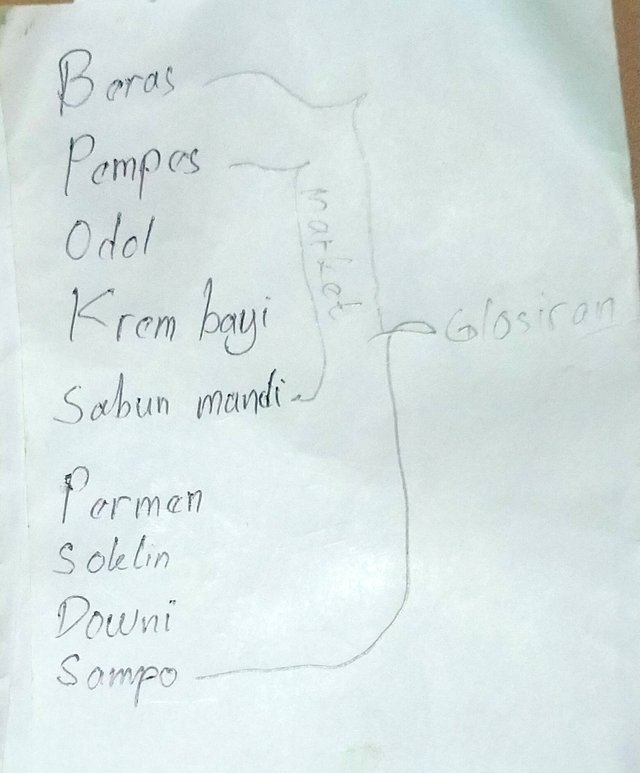 Beras
Pempes
Odol
Krem bayi
Sabun mandi
Permen
Soklin
Downi
Sampo
market
Glosiran